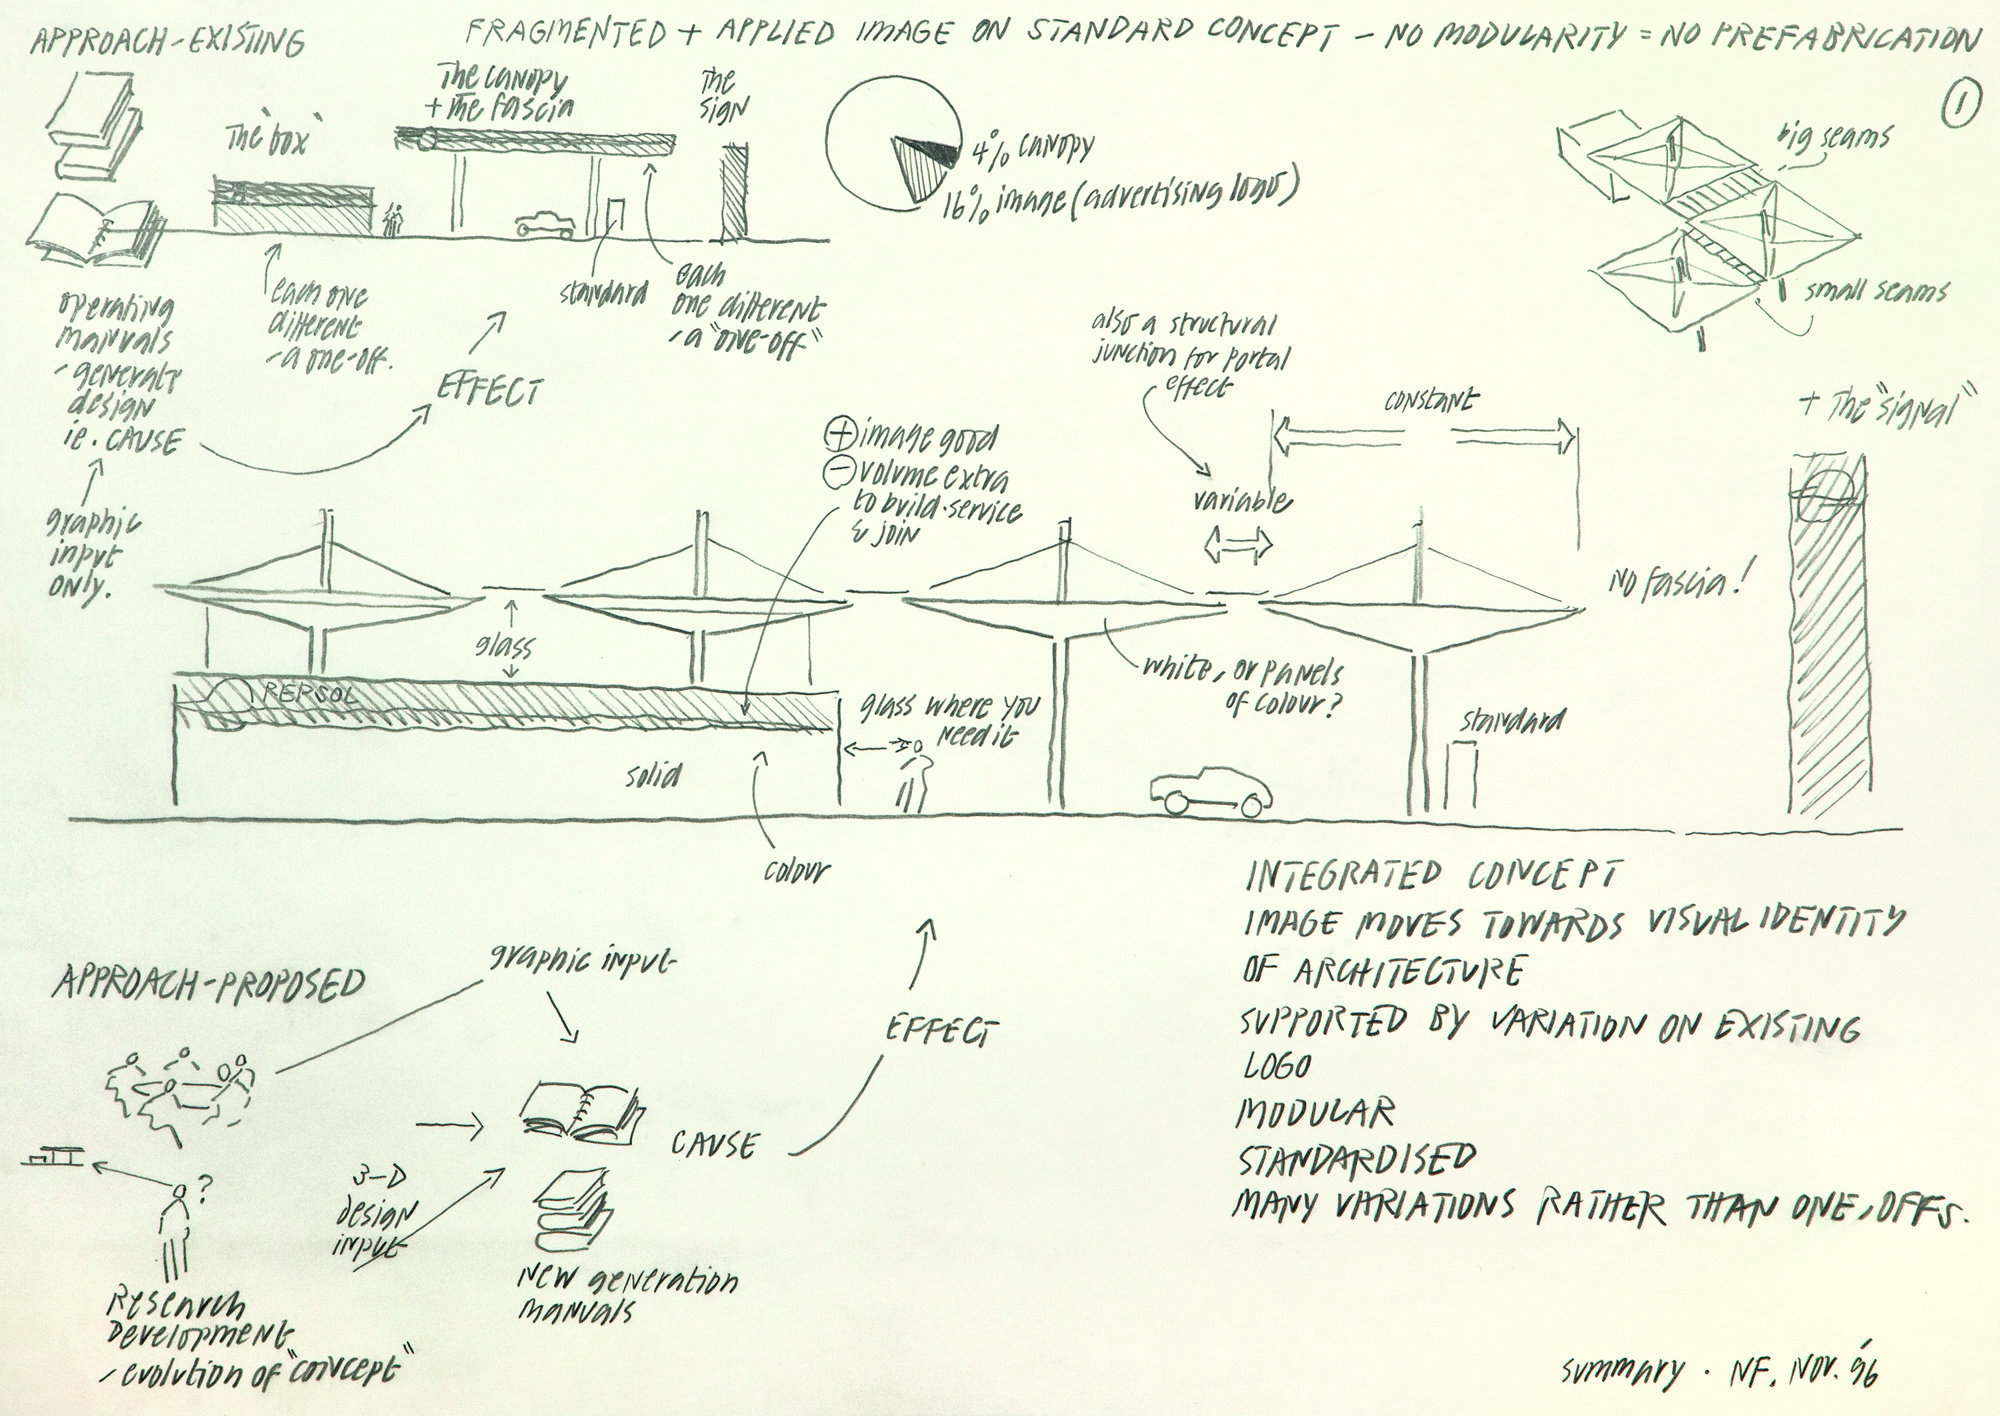 APPROACH-EXISTING
FRAGMENTED + APPLIED IMAGE ON STANDARD CONCEPT - NO MODULARITY = NO PREFABRICATION
1
The "box"
The canopy
+ the fascia
The
sign
4% canopy
16% image (advertising logo)
big seams
small seams
operating
manuals
- generate
design
ie. CAUSE
each one
different
- a one-off.
EFFECT
standard
each
one different
- a "one-off"
graphic
input
only.
+ image good
- volume extra
to build-service
& join
also a structural
junction for portal
effect
variable
constant
+ The "signal"
No fascia!
glass
REPSOL
glass where you
need it
white, or panels
of colour?
standard
solid
colour
INTEGRATED CONCEPT
IMAGE MOVES TOWARDS VISUAL IDENTITY
OF ARCHITECTURE
SUPPORTED BY VARIATION ON EXISTING
LOGO
MODULAR
STANDARDISED
MANY VARIATIONS RATHER THAN ONE-OFFS.
APPROACH-PROPOSED
graphic input
EFFECT
CAUSE
?
3-D
design
input
New generation
manuals
Research
Development
- evolution of "concept"
summary . NF. Nov. '96